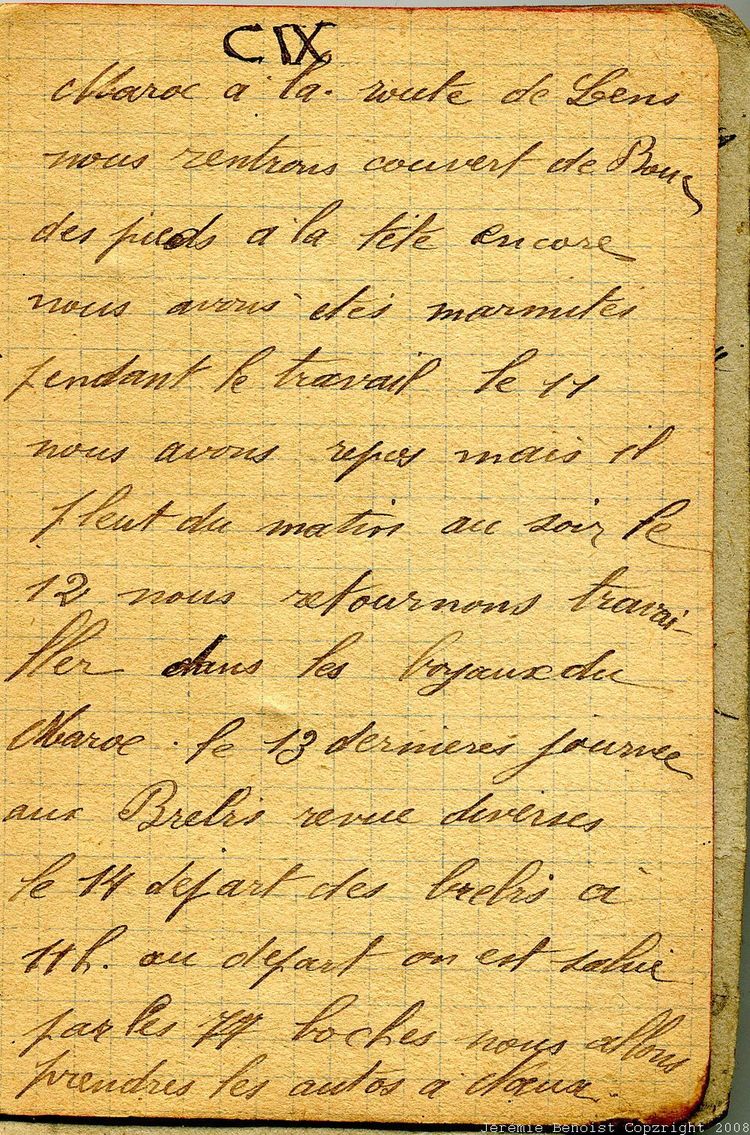 CIX
Maroc à la route de Lens
nous rentrons couvert de Boue
des pieds a la tête encore
nous avons étés marmités
pendant le travail le 11
nous avons repos mais il
pleut du matin au soir le
12 nous retournons travai-
ller dans les boyaux du
Maroc. le 13 dernieres journee
aux Brebis revue diverses
le 14 départ des brebis à
11h. au départ on est salué
par les 77 boches nous allons
prendres les autos a Noeux.
Jeremie Benoist Copyright 2008